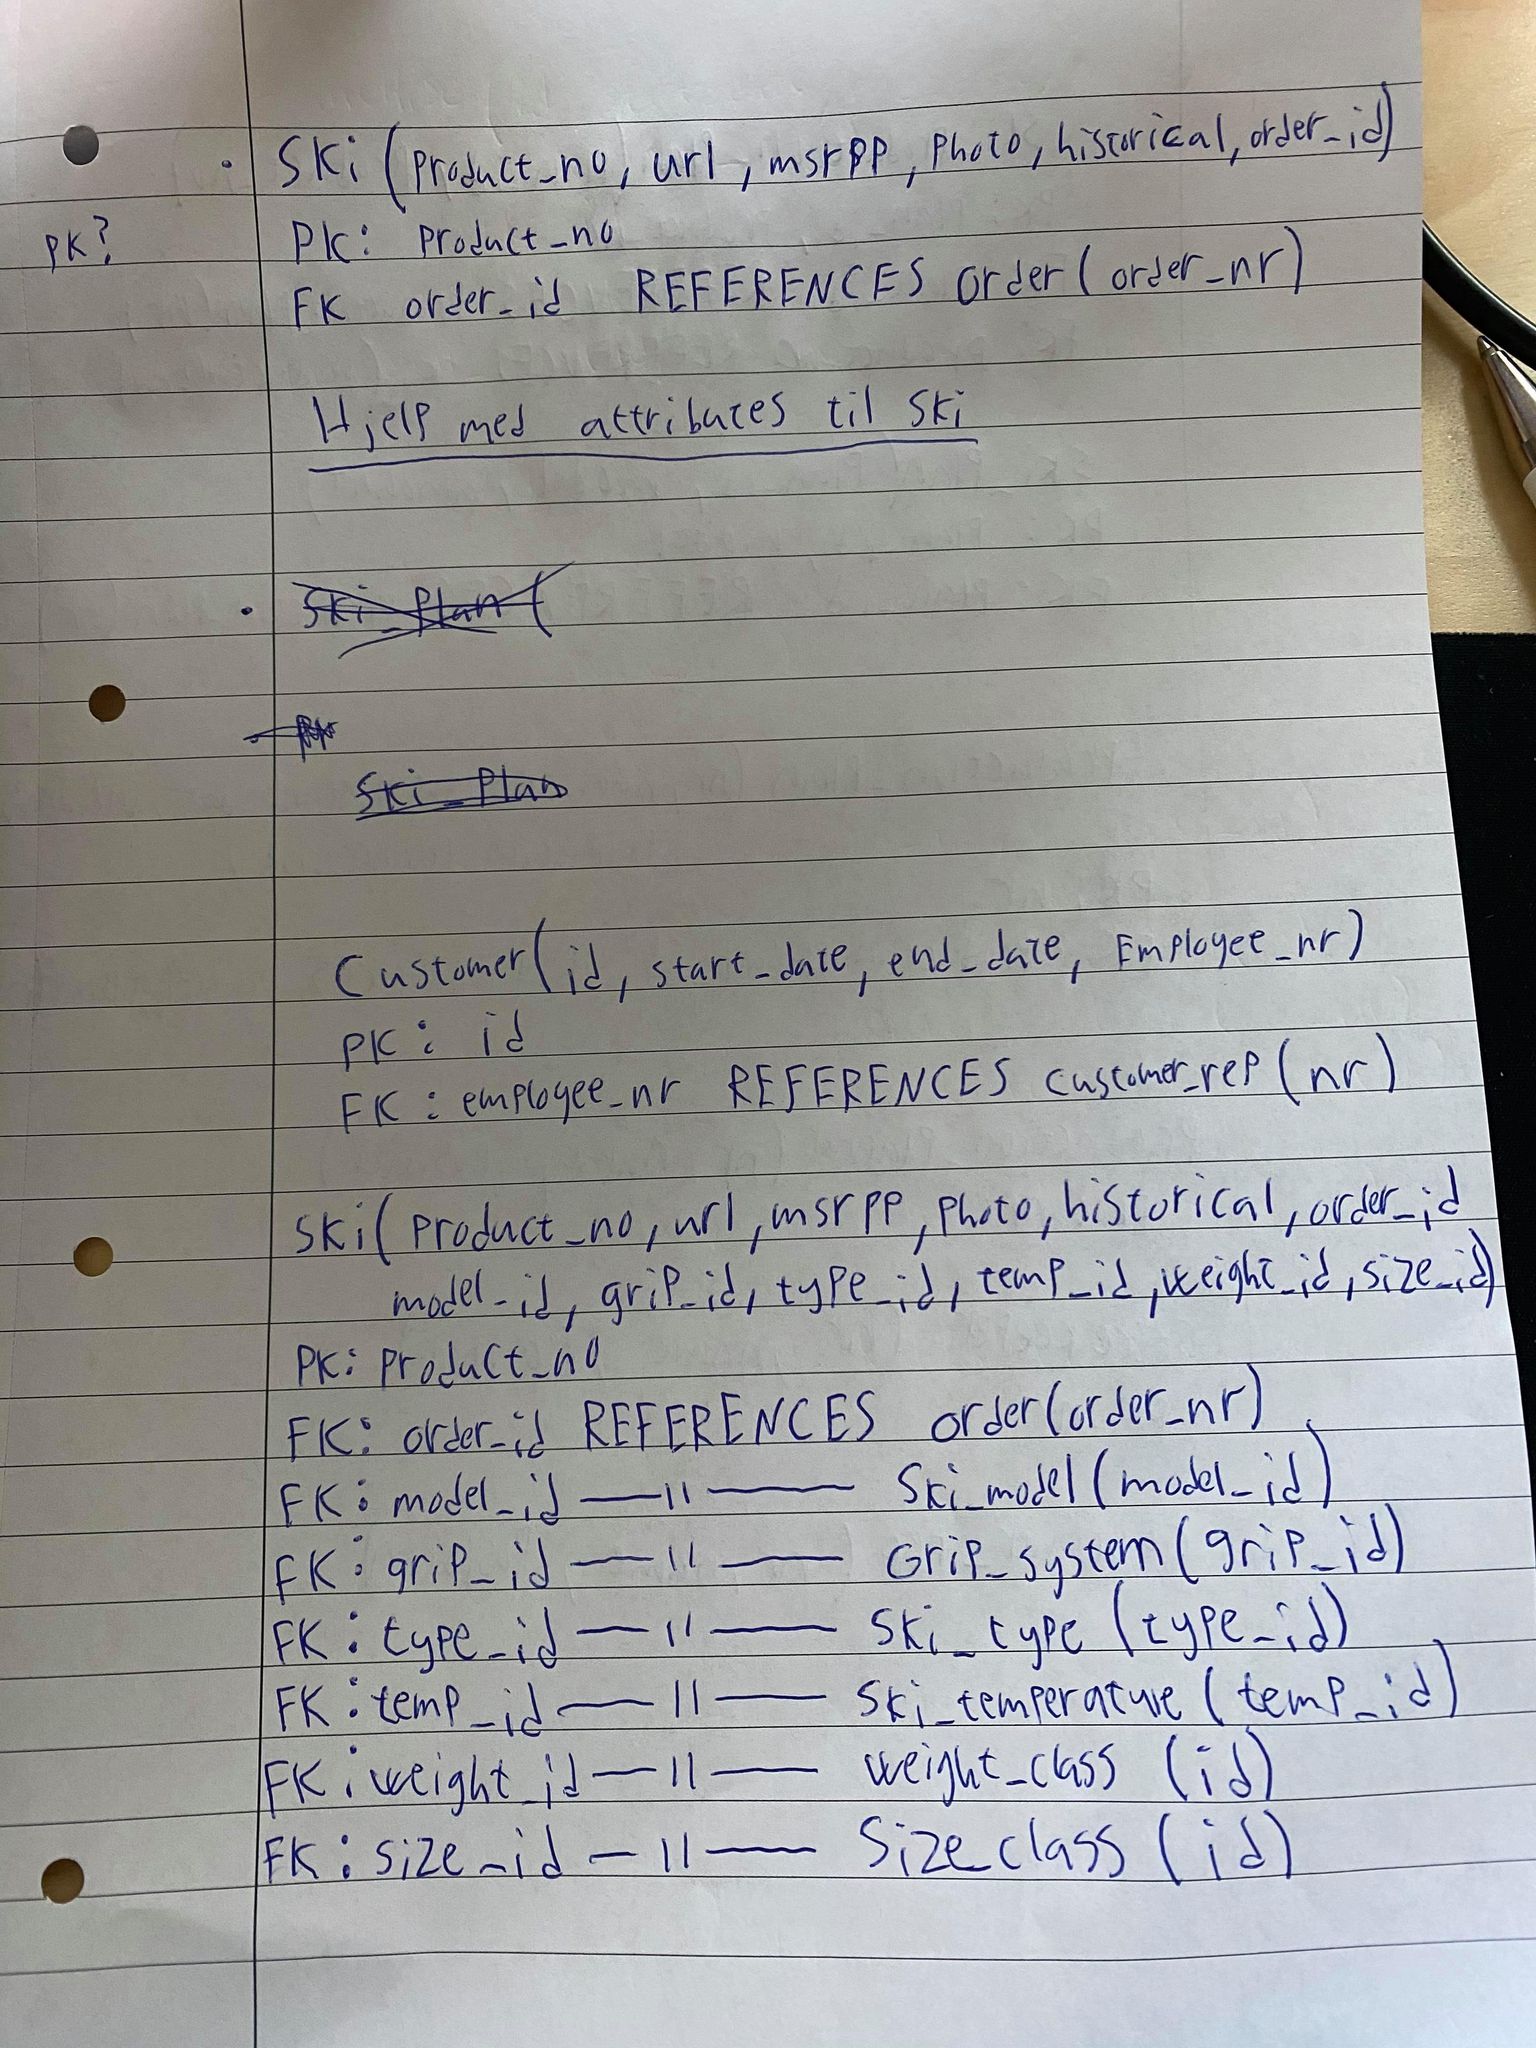 Ski (product_no, url, msrpp, photo, historical, order_id)
PK? PK: product_no
FK order_id REFERENCES order (order_nr)
Hjelp med attributes til ski
Ski_Plan (
Ski_Plan
Customer (id, start_date, end_date, Employee_nr)
PK: id
FK: employee_nr REFERENCES customer_rep (nr)
Ski (product_no, url, msrpp, photo, historical, order_id
model_id, grip_id, type_id, temp_id, weight_id, size_id)
PK: product_no
FK: order_id REFERENCES order (order_nr)
FK: model_id —11— Ski_model (model_id)
FK: grip_id —11— Grip_system (grip_id)
FK: type_id —11— Ski_type (type_id)
FK: temp_id —11— Ski_temperature (temp_id)
FK: weight_id —11— weight_class (id)
FK: size_id —11— Size_class (id)